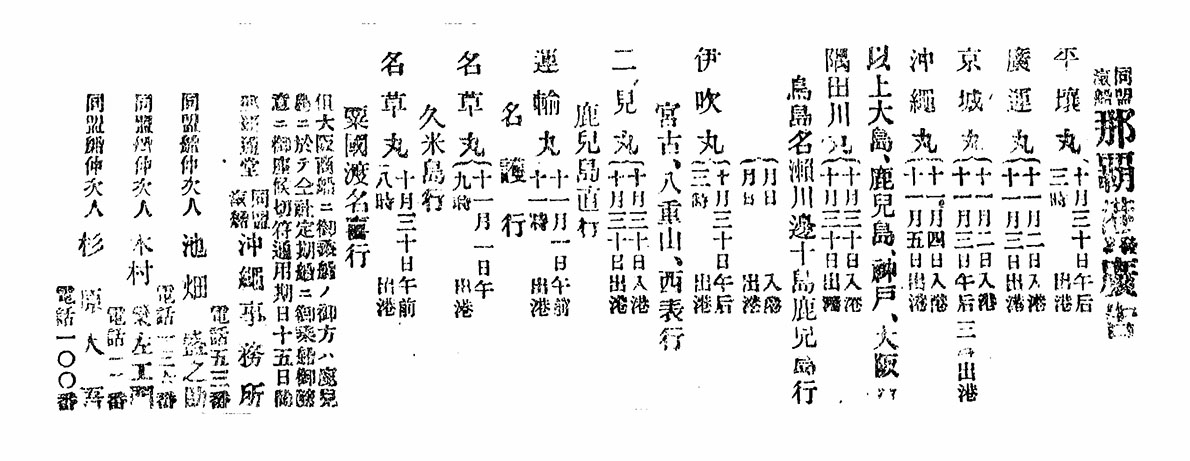 同盟汽船 那覇港發廣告
平壤丸 十月三十日午后三時 出港
廣運丸 十一月二日入港 十一月三日出港
京城丸 十一月二日入港 十一月三日午后三時出港
沖繩丸 十一月四日入港 十一月五日出港
以上大島、鹿兒島、神戸、大阪行
隅田川丸 十月三十日入港 十月三十日出港
鳥島名瀬川邊十島鹿兒島行
月日 入港 月日 出港
伊吹丸 十月三十日午后三時 出港
宮古、八重山、西表行
二見丸 十月三十日入港 十月三十日出港
鹿兒島直行
運輸丸 十一月一日午前十一時 出港
名護行
名草丸 十一月一日午 九時 出港
久米島行
名草丸 十月三十日午前八時 出港
粟國渡名喜行
但大阪商船ニ御乘船ノ御方ハ鹿兒
島ニ於テ仝社定期船ニ御乘船御隨
意ニ御座候切符通用期日十五日間
同盟汽船 沖繩事務所
電話五三番
同盟船仲次人 池畑盛之助
同盟船仲次人 木村榮左工門
同盟船仲次人 杉原大吾
電話一〇〇番